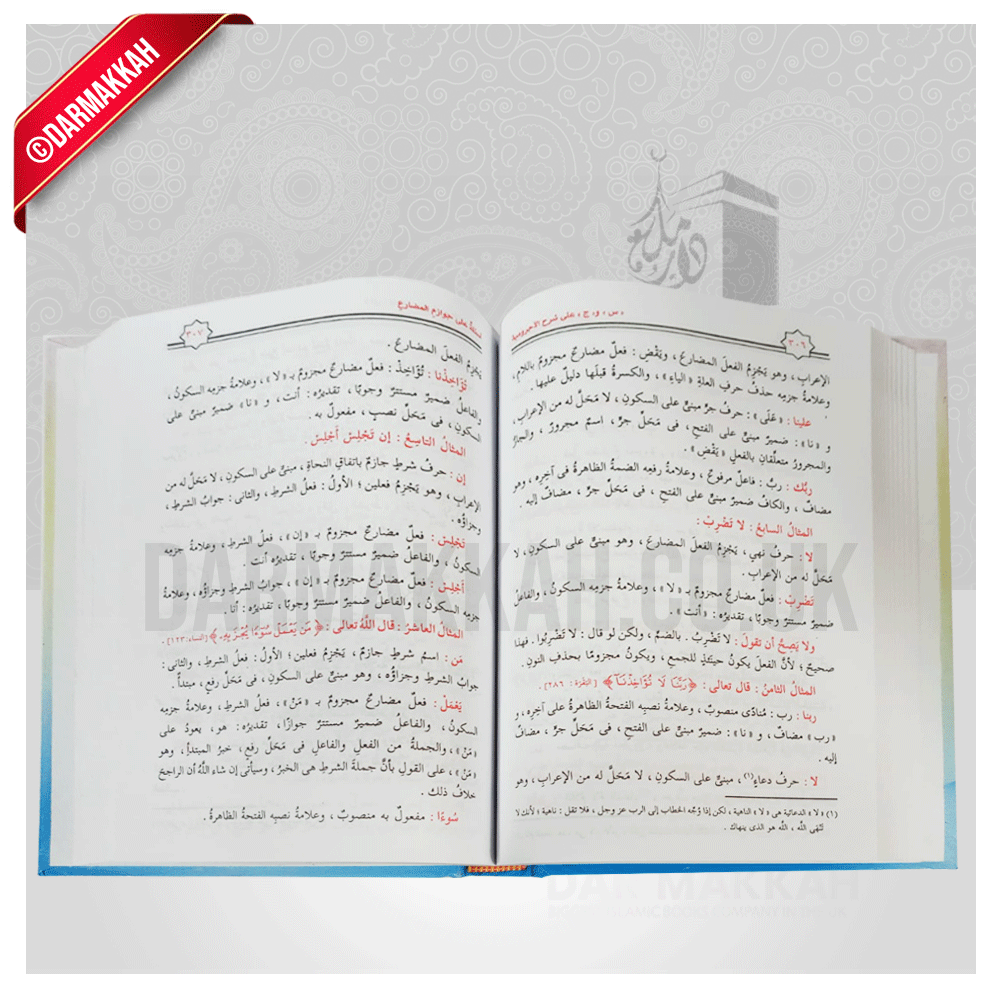 ©DARMAKKAH
دار مكة
٣٠٦
« س ، و، ج » على شرح الآجرومية
الإعراب ، وهو يَجْزِمُ الفعلَ المضارعَ ، ويَقْضِ : فعلٌ مضارعٌ مجزومٌ باللامِ،
وعلامةُ جزمِه حذفُ حرفِ العلةِ «الياءِ» ، والكسرةُ قبلَها دليلٌ عليها .
علينا : «عَلَى» : حرفُ جرٍّ مبنىٌّ على السكونِ ، لا مَحَلَّ له من الإعرابِ،
و «نا» : ضميرٌ مبنىٌّ على الفتحِ، فى مَحَلِّ جرٍّ، اسمٌ مجرورٌ ، والجارُّ
والمجرورُ متعلِّقانِ بالفعلِ «يَقْضِ» .
ربُّك : ربُّ : فاعلٌ مرفوعٌ ، وعلامةُ رفعِه الضمةُ الظاهرةُ فى آخِرِه ، وهو
مضافٌ ، والكافُ ضميرٌ مبنىٌّ على الفتحِ ، فى مَحَلِّ جرٍّ ، مضافٌ إليه .
المثالُ السابعُ : لا تَضْرِبْ :
لا : حرفُ نهىٍ ، يَجْزِمُ الفعلَ المضارعَ ، وهو مبنىٌّ على السكونِ ، لا
مَحَلَّ له من الإعرابِ .
تَضْرِبْ : فعلٌ مضارعٌ مجزومٌ بـ «لا» ، وعلامةُ جزمِه السكونُ ، والفاعلُ
ضميرٌ مستترٌ وجوبًا ، تقديرُه : «أنت» .
ولا يَصِحُّ أن تقولَ : لا تَضْرِبُ . بالضمِّ ، ولكن لو قال : لا تَضْرِبُوا . فهذا
صحيحٌ ؛ لأنَّ الفعلَ يكونُ حينَئذٍ للجمعِ ، ويكونُ مجزومًا بحذفِ النونِ .
المثالُ الثامنُ : قال تعالى : ﴿رَبَّنَا لَا تُؤَاخِذْنَآ﴾ [البَقَرَة : ٢٨٦] .
ربنا : رب : مُنادًى منصوبٌ ، وعلامةُ نصبِه الفتحةُ الظاهرةُ على آخِرِه ، و
«رب» مضافٌ ، و «نا» : ضميرٌ مبنىٌّ على الفتحِ ، فى مَحَلِّ جرٍّ ، مضافٌ
إليه .
لا : حرفُ دعاءٍ(١) ، مبنىٌّ على السكونِ ، لا مَحَلَّ له من الإعرابِ ، وهو
(١) «لا» الدعائية هى «لا» الناهية ، لكن إذا وُجِّه الخطاب إلى الرب عز وجل ، فلا تقل : ناهية ؛ لأنك لا
تَنْهَى اللَّه ، اللَّه هو الذى ينهاك .
أسئلةٌ على جوازمِ المضارعِ
٣٠٧
يَجْزِمُ الفعلَ المضارعَ .
تُؤَاخِذْنا : تُؤَاخِذْ : فعلٌ مضارعٌ مجزومٌ بـ «لا» ، وعلامةُ جزمِه السكونُ ،
والفاعلُ ضميرٌ مستترٌ وجوبًا ، تقديرُه : أنت ، و «نا» ضميرٌ مبنىٌّ على
السكونِ ، فى مَحَلِّ نصبٍ ، مفعولٌ به .
المثالُ التاسعُ : إن تَجْلِسْ أَجْلِسْ .
إن : حرفُ شرطٍ جازمٌ باتفاقِ النحاةِ ، مبنىٌّ على السكونِ ، لا مَحَلَّ له من
الإعرابِ ، وهو يَجْزِمُ فعلين ؛ الأولُ : فعلُ الشرطِ ، والثانى : جوابُ الشرطِ ،
وجزاؤُه .
تَجْلِسْ : فعلٌ مضارعٌ مجزومٌ بـ «إن» ، فعلُ الشرطِ ، وعلامةُ جزمِه
السكونُ ، والفاعلُ ضميرٌ مستترٌ وجوبًا ، تقديرُه : أنت .
أَجْلِسْ : فعلٌ مضارعٌ مجزومٌ بـ «إن» ، جوابُ الشرطِ وجزاؤُه ، وعلامةُ
جزمِه السكونُ ، والفاعلُ ضميرٌ مستترٌ وجوبًا ، تقديرُه : أنا .
المثالُ العاشرُ : قال اللَّهُ تعالى : ﴿مَن يَعْمَلْ سُوٓءًا يُجْزَ بِهِۦ﴾ [النساء: ١٢٣] .
مَن : اسمُ شرطٍ جازمٌ ، يَجْزِمُ فعلين ؛ الأولُ : فعلُ الشرطِ ، والثانى :
جوابُ الشرطِ وجزاؤُه ، وهو مبنىٌّ على السكونِ ، فى مَحَلِّ رفعٍ ، مبتدأٌ .
يَعْمَلْ : فعلٌ مضارعٌ مجزومٌ بـ «مَنْ» ، فعلُ الشرطِ ، وعلامةُ جزمِه
السكونُ ، والفاعلُ ضميرٌ مستترٌ جوازًا ، تقديرُه : هو ، يعودُ على
«مَنْ» ، والجملةُ من الفعلِ والفاعلِ فى مَحَلِّ رفعٍ ، خبرُ المبتدأ ، وهو
«مَنْ» ، على القولِ بأنَّ جملةَ الشرطِ هى الخبرُ ، وسيأتى إن شاء اللَّهُ أن الراجحَ
خلافُ ذلك .
سُوءًا : مفعولٌ به منصوبٌ ، وعلامةُ نصبِه الفتحةُ الظاهرةُ .
DARMAKKAH.CO.UK
DAR MAKKAH